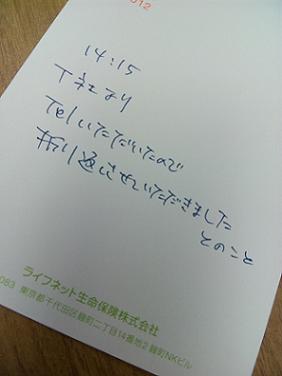 012
14:15
T社より
Telいただいたので
折り返させていただきました
とのこと
ライフネット生命保険株式会社
083 東京都千代田区麹町二丁目14番地2麹町NKビル